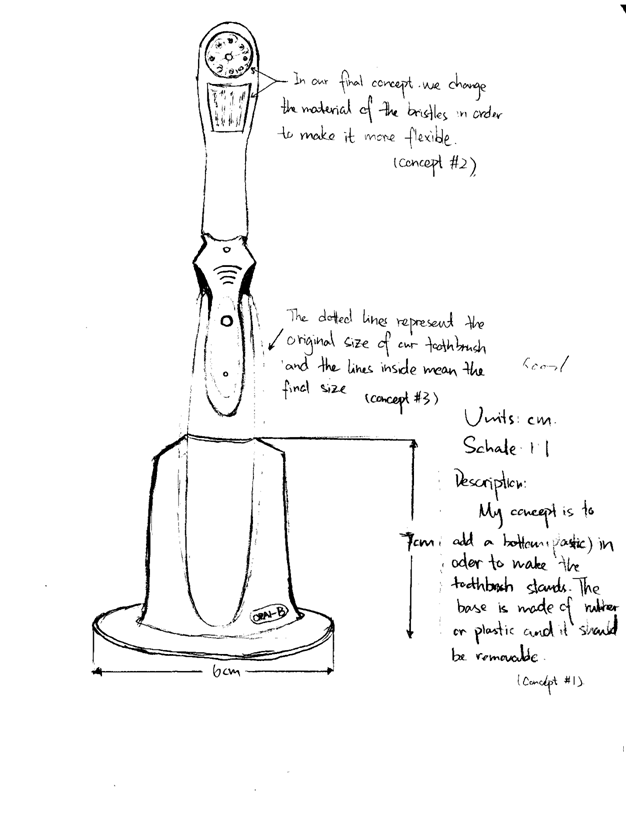 In our final concept. we change
the material of the bristles in order
to make it more flexible.
(concept #2)
The dotted lines represent the
original size of our toothbrush
and the lines inside mean the
final size
(concept #3)
Units: cm.
Schale: 1:1
Description:
My concept is to
add a bottom (plastic) in
oder to make the
toothbrush stands. The
base is made of rubber
or plastic and it should
be removable.
(Concept #1)
7cm
ORAL-B
6cm